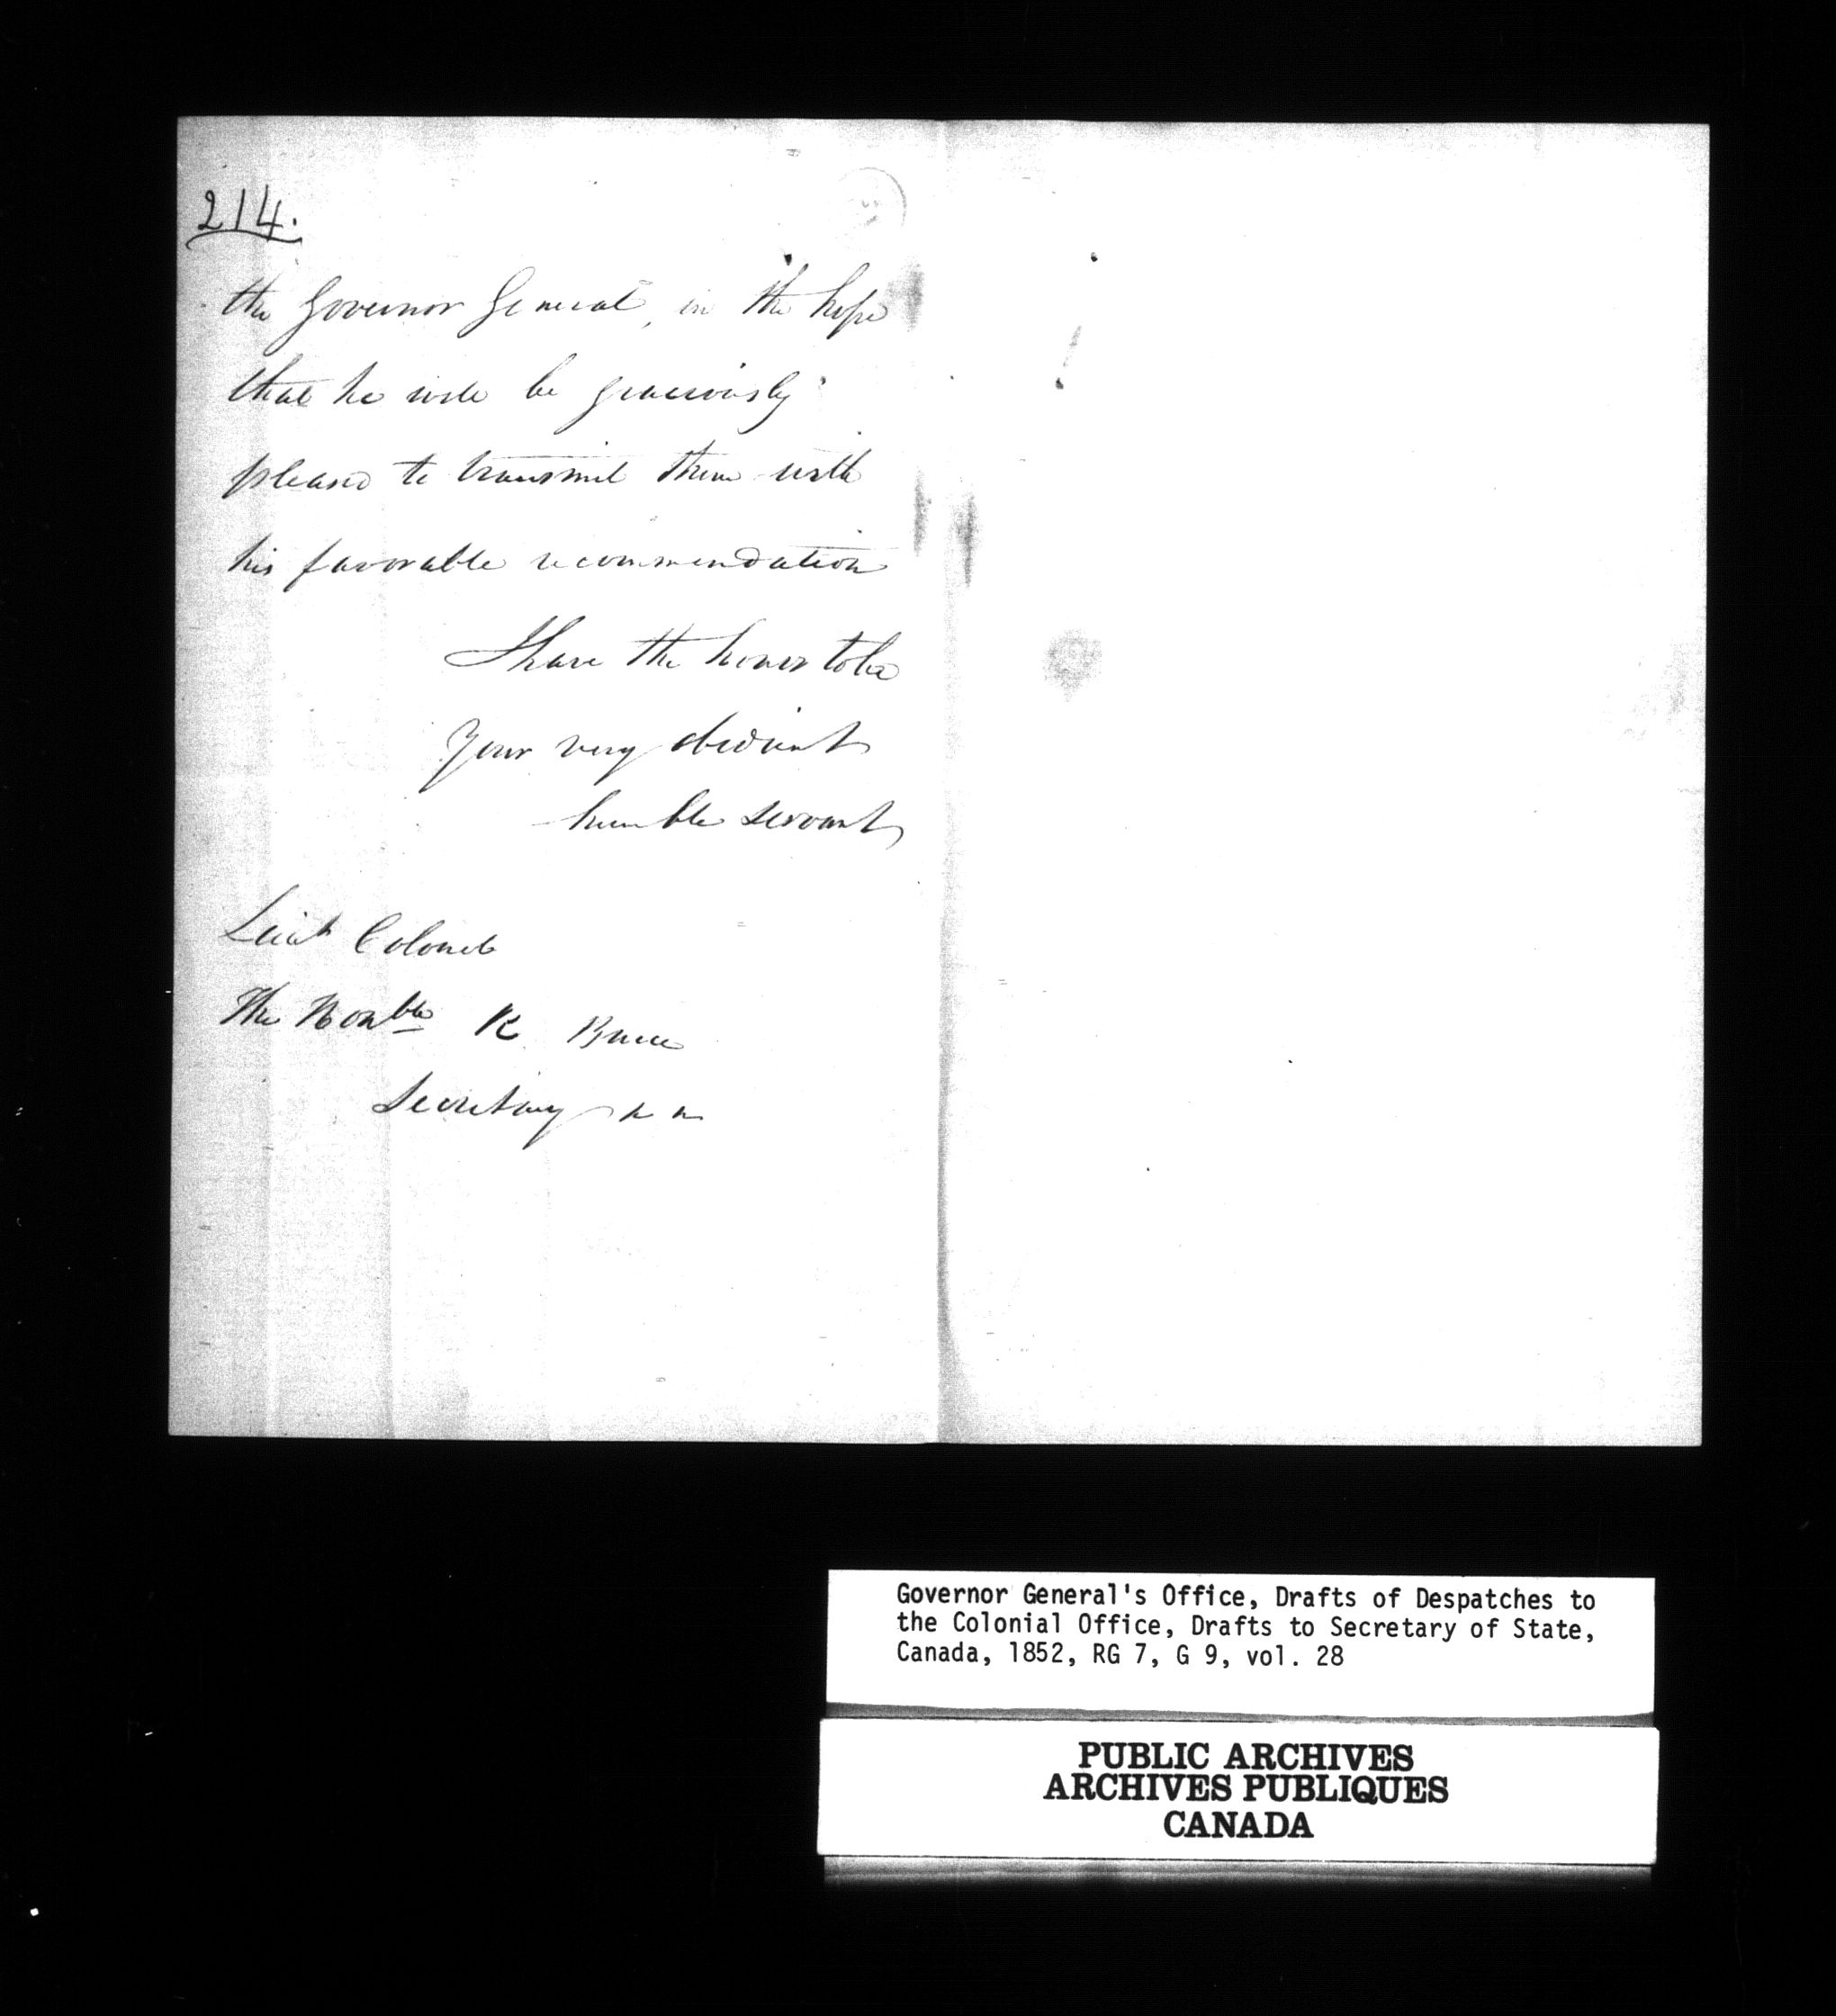 214.
the Governor General, in the hope
that he will be graciously
pleased to transmit them with
his favorable recommendation
I have the honor to be
Your very obedient
humble servant
Lieut Colonel
The Honble R Bruce
Secretary
Governor General's Office, Drafts of Despatches to
the Colonial Office, Drafts to Secretary of State,
Canada, 1852, RG 7, G 9, vol. 28
PUBLIC ARCHIVES
ARCHIVES PUBLIQUES
CANADA